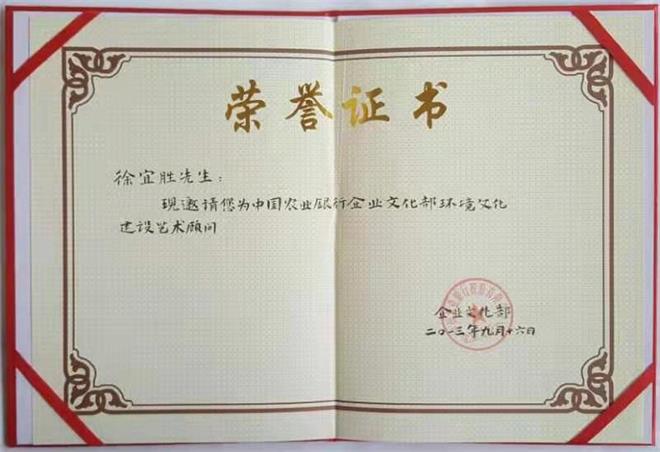 荣誉证书
徐宜胜先生：
现邀请您为中国农业银行企业文化部环境文化
建设艺术顾问
企业文化部
二〇一三年九月十六日